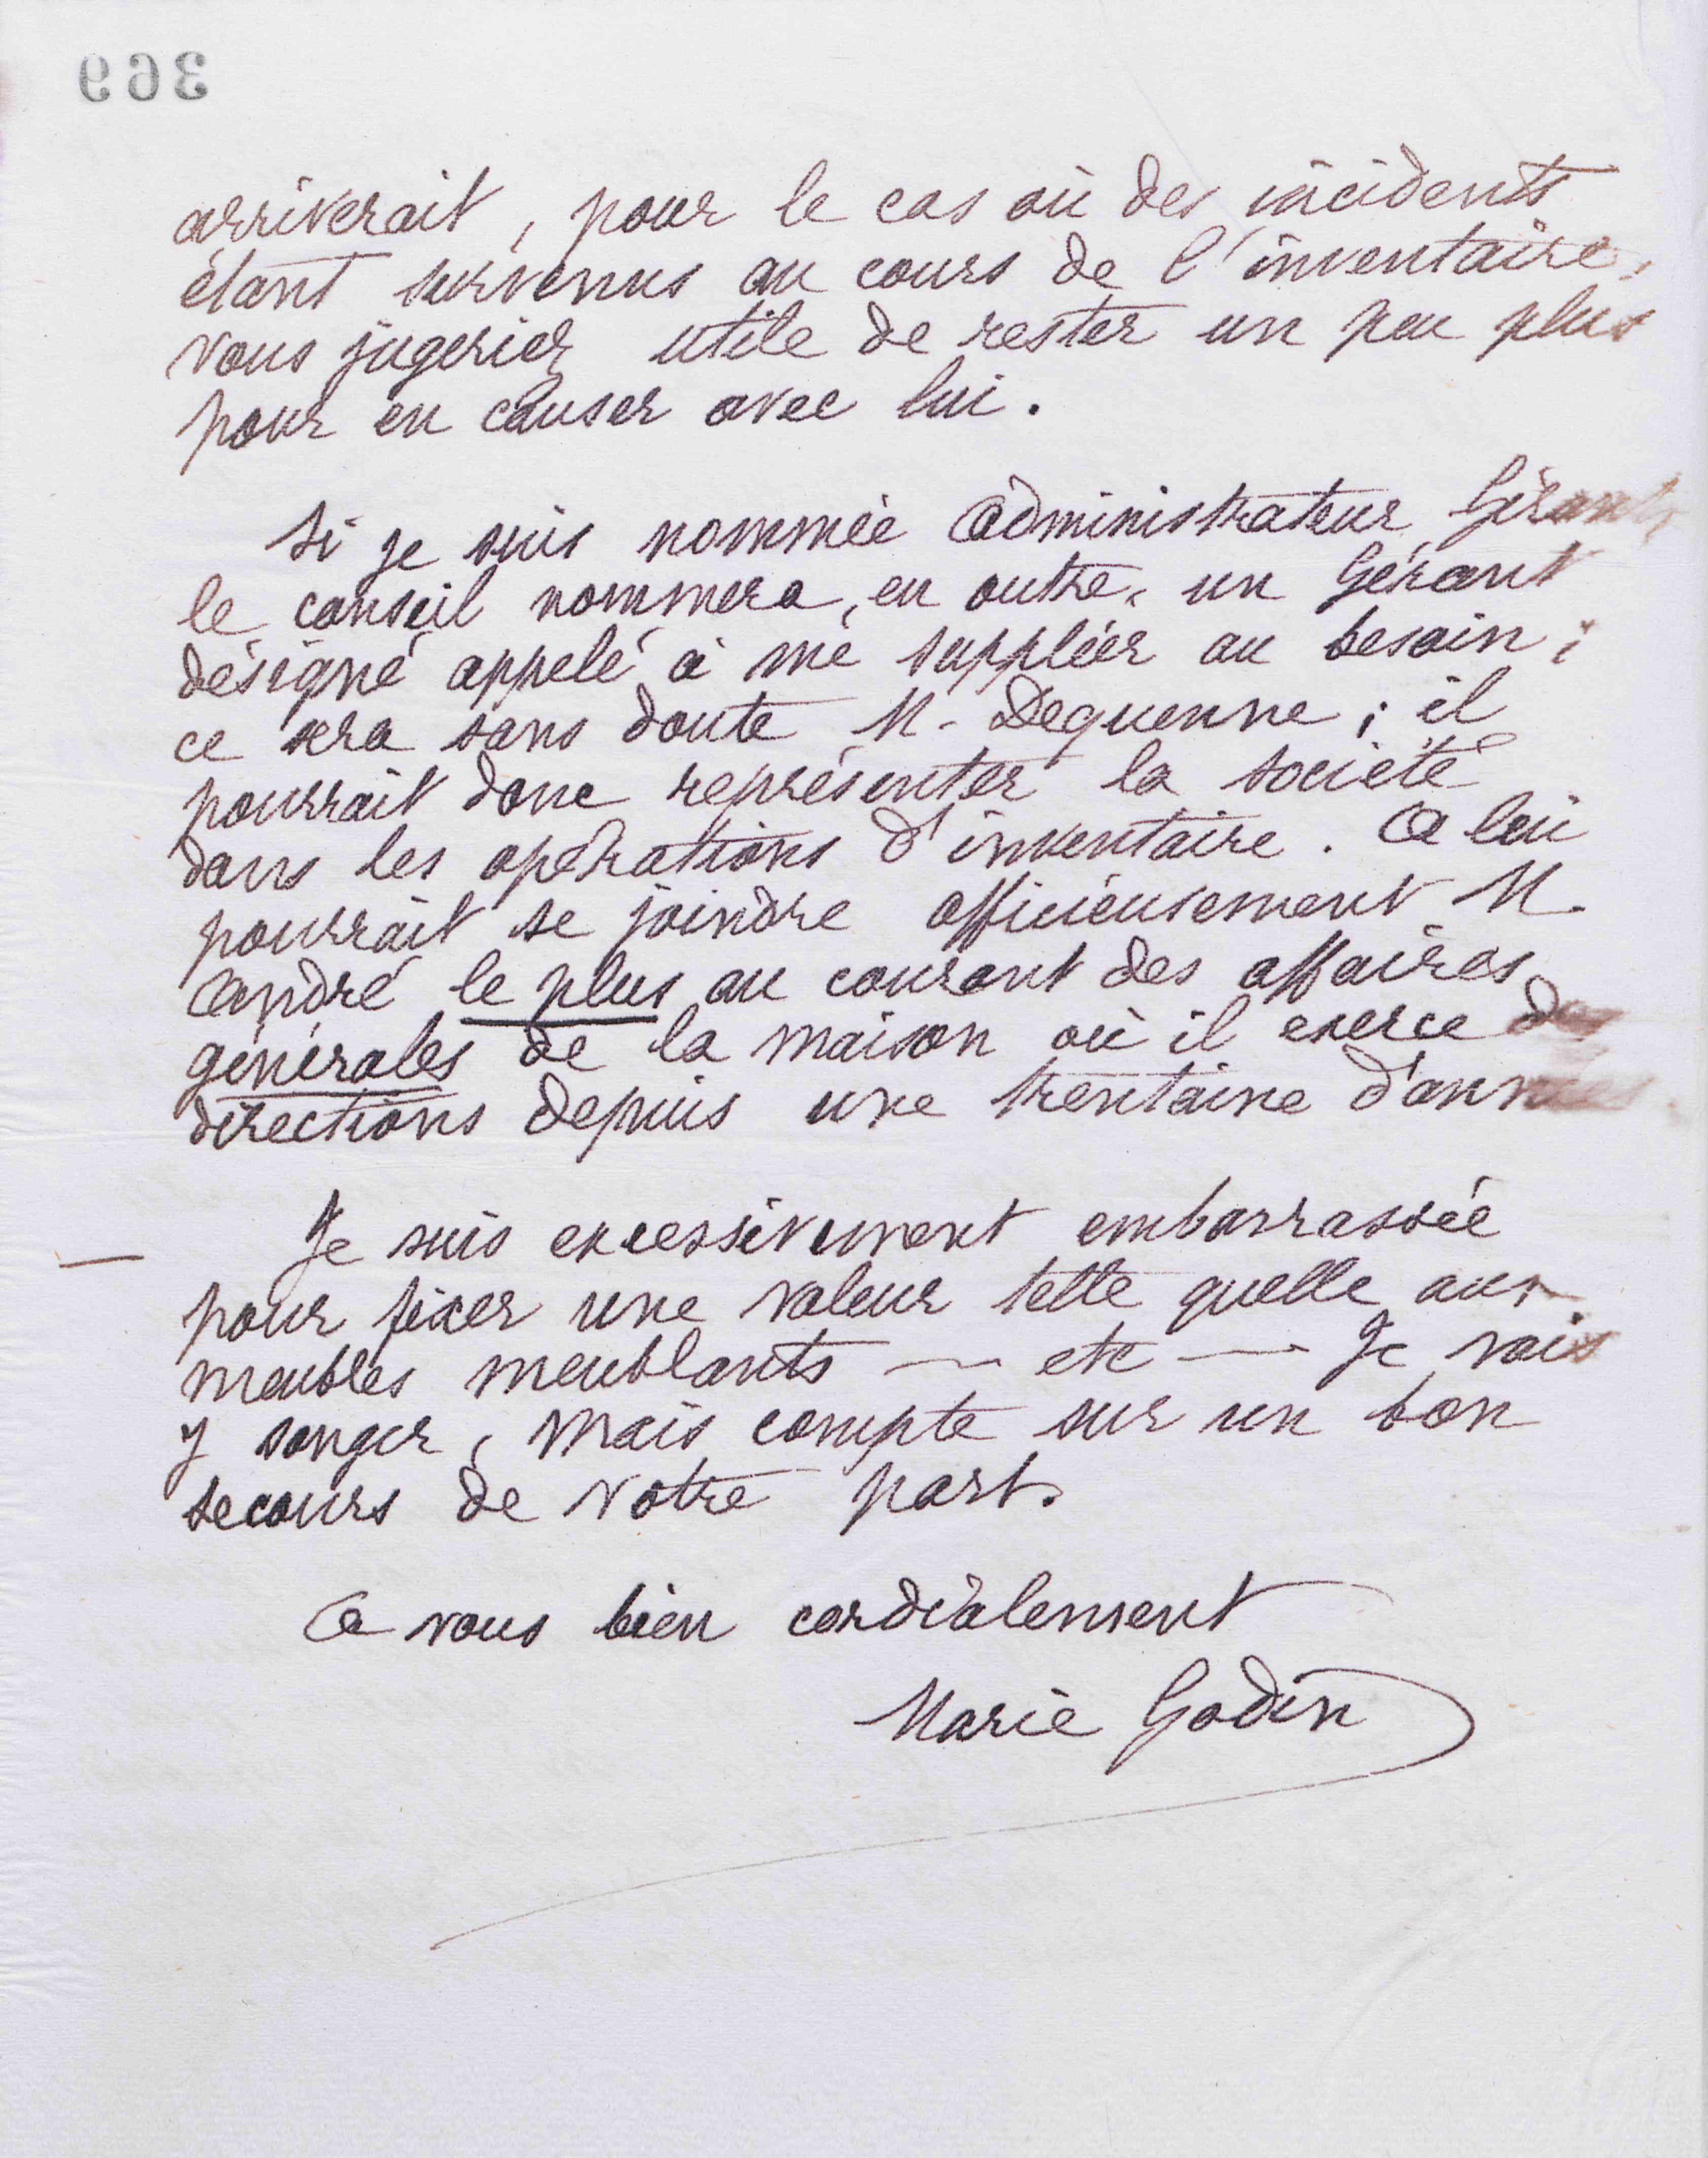 369
arriverait, pour le cas où des incidents
étant survenus au cours de l'inventaire,
vous jugeriez utile de rester un peu plus
pour en causer avec lui.
Si je suis nommée Administrateur Gérant,
le conseil nommera, en outre, un Gérant
désigné appelé à me suppléer au besoin ;
ce sera sans doute M. Dequenne ; il
pourrait donc représenter la société
dans les opérations d'inventaire. A lui
pourrait se joindre officieusement M.
André le plus au courant des affaires
générales de la maison où il exerce des
directions depuis une trentaine d'années
— Je suis excessivement embarrassée
pour fixer une valeur telle quelle aux
meubles meublants — etc — Je vais
y songer, mais compte sur un bon
secours de votre part.
A vous bien cordialement
Marie Godin